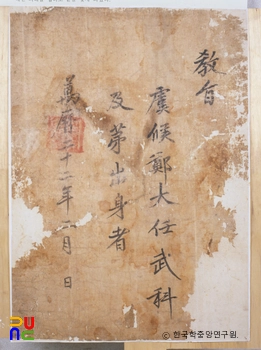 教旨
虞候鄭大任武科
及第出身者
萬曆二十二年二月 日
© 한국학중앙연구원